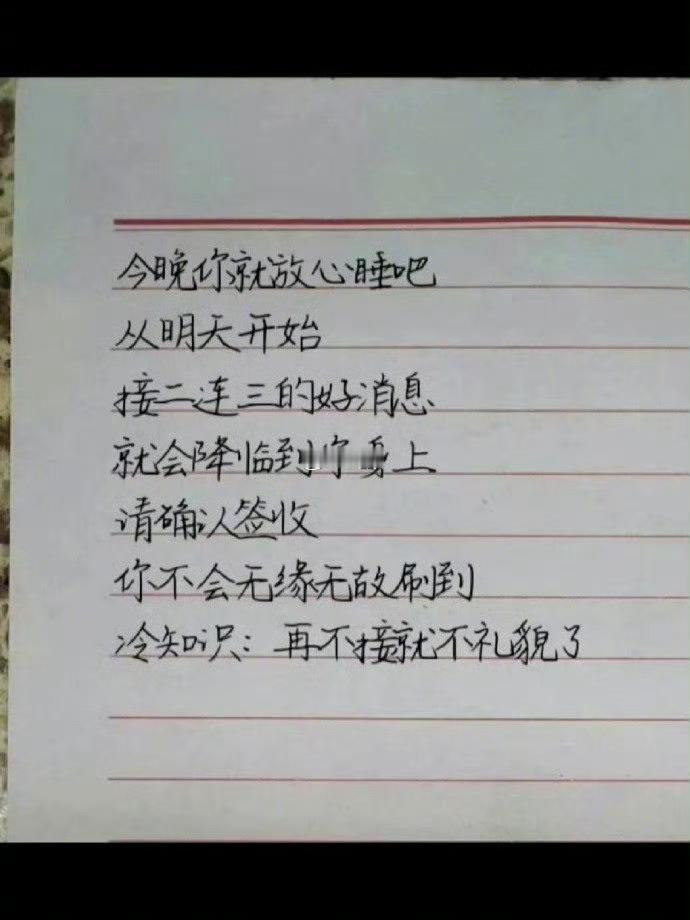 今晚你就放心睡吧
从明天开始
接二连三的好消息
就会降临到你身上
请确认签收
你不会无缘无故刷到
冷知识：再不接就不礼貌了